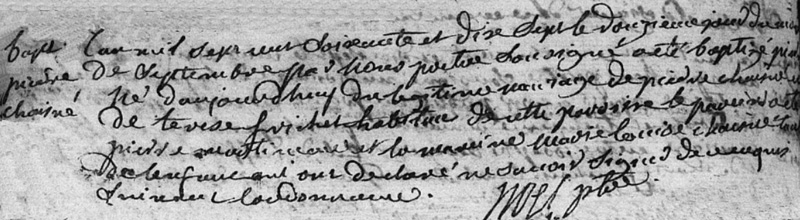 bapt L'an mil sept cent soixante et dixe sept le douzieme jour du mois
pierre de septembre par nous pretre soussigné a eté baptizé pierre
chainé né d'aujourdhuy du legitime mariage de pierre chainé
de terese frichet habitans de cette paroisse le parein a eté
pierre martineau et la mareine marie louise chainé
de l'enfant qui ont declaré ne savoir signer de ce enquis
suivant l'ordonnance.
Noel ptre.